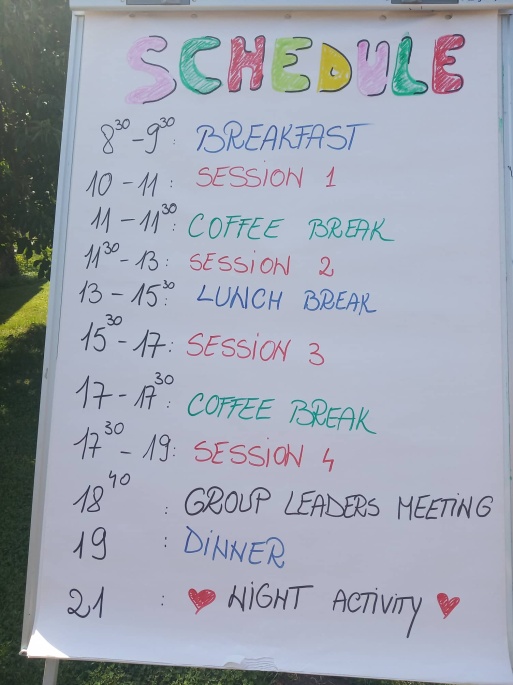 SCHEDULE
8³⁰-9³⁰: BREAKFAST
10-11: SESSION 1
11-11³⁰: COFFEE BREAK
11³⁰-13: SESSION 2
13-15³⁰: LUNCH BREAK
15³⁰-17: SESSION 3
17-17³⁰: COFFEE BREAK
17³⁰-19: SESSION 4
18⁴⁰ : GROUP LEADERS MEETING
19 : DINNER
21 : ♥ NIGHT ACTIVITY ♥